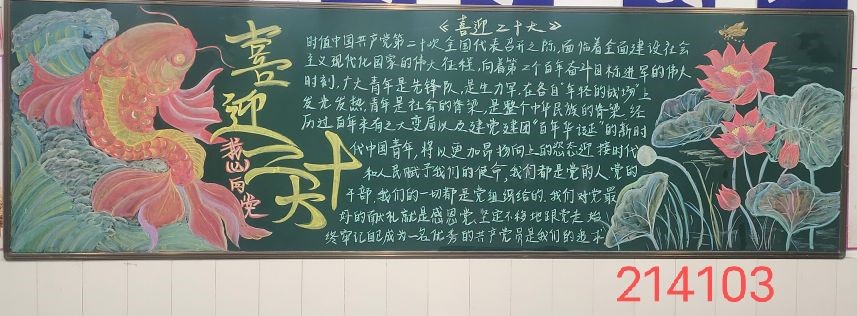 喜迎二十大
我心向党
《喜迎二十大》
时值中国共产党第二十次全国代表召开之际，面临着全面建设社会
主义现代化国家的伟大征程，向着第二个百年奋斗目标进军的伟大
时刻，广大青年是先锋队，是生力军，在各自"年轻的战场"上
发光发热，青年是社会的脊梁，是整个中华民族的脊梁，经
历过百年未有之大变局以及建党建团"百年华诞"的新时
代中国青年，将以更加昂扬向上的姿态迎接时代
和人民赋予我们的使命，我们都是党的人，党的
干部，我们的一切都是党组织给的，我们对党最
好的献礼就是感恩党，坚定不移地跟党走，始
终牢记自己成为一名优秀的共产党员是我们的追求
214103